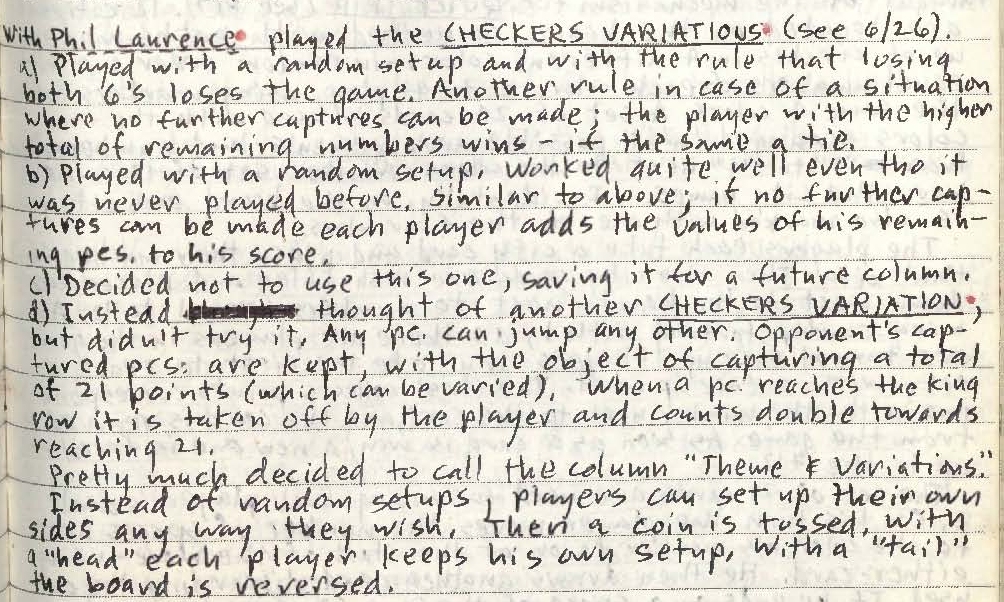 With Phil Laurence played the CHECKERS VARIATIONS (see 6/26).
a) Played with a random setup and with the rule that losing
both 6's loses the game. Another rule in case of a situation
where no further captures can be made; the player with the higher
total of remaining numbers wins - if the same a tie.
b) Played with a random setup. Worked quite well even tho it
was never played before. Similar to above; if no further cap-
tures can be made each player adds the values of his remain-
ing pcs. to his score.
c) Decided not to use this one, saving it for a future column.
d) Instead thought of another CHECKERS VARIATION,
but didn't try it. Any pc. can jump any other. Opponent's cap-
tured pcs. are kept, with the object of capturing a total
of 21 points (which can be varied). When a pc. reaches the king
row it is taken off by the player and counts double towards
reaching 21.
Pretty much decided to call the column "Theme & Variations."
Instead of random setups, players can set up their own
sides any way they wish. Then a coin is tossed. With
a "head" each player keeps his own setup. With a "tail"
the board is reversed.